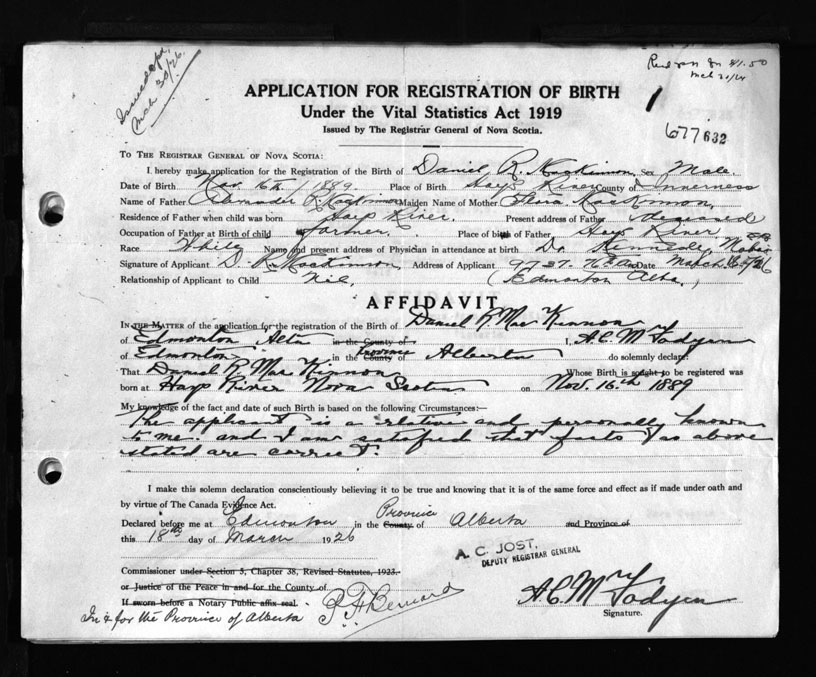 Issued
Mch 30/26.
$1.50
APPLICATION FOR REGISTRATION OF BIRTH
Under the Vital Statistics Act 1919
Issued by The Registrar General of Nova Scotia.
677632
TO THE REGISTRAR GENERAL OF NOVA SCOTIA:
I hereby make application for the Registration of the Birth of Daniel R. Mackinnon Sex Male.
Date of Birth Nov. 16th / 1889. Place of Birth Hays River County of Inverness
Name of Father Alexander Mackinnon Maiden Name of Mother Flora MacKinnon,
Residence of Father when child was born Hays River. Present address of Father deceased
Occupation of Father at Birth of child farmer. Place of birth of Father, Hays River
Race White Name and present address of Physician in attendance at birth Dr Kennedy, Mabou
Signature of Applicant D. R. Mackinnon Address of Applicant 9737. 76 Ave Date March
Relationship of Applicant to Child Nil, (Edmonton Alta.,)
AFFIDAVIT
IN THE MATTER of the application for the registration of the Birth of Daniel R MacKinnon
of Edmonton Alta in the County of I, A. C. McFadyen
of Edmonton in the County of Province Alberta do solemnly declare:
That Daniel R. MacKinnon Whose Birth is sought to be registered was
born at Hays River Nova Scotia on Nov. 16th 1889
My knowledge of the fact and date of such Birth is based on the following Circumstances:—
The applicant is a relative and personally known
to me. and I am satisfied that facts as above
stated are correct.
I make this solemn declaration conscientiously believing it to be true and knowing that it is of the same force and effect as if made under oath and
by virtue of The Canada Evidence Act.
Declared before me at Edmonton in the County of Province Alberta and Province of
this 18th day of March 1926
A. C. JOST,
DEPUTY REGISTRAR GENERAL
Commissioner under Section 5, Chapter 38, Revised Statutes, 1923.
or Justice of the Peace in and for the County of
If sworn before a Notary Public affix seal.
In & for the Province of Alberta
A. C. McFadyen
Signature.